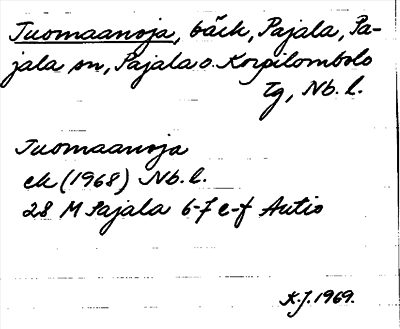 Tuomaanoja, bäck, Pajala, Pa-
jala sn, Pajala o. Korpilombolo
Tg, Nb. l.
Tuomaanoja
ek (1968) Nb. l.
28 M Pajala 6-7 e-f Autio
K.J. 1969.